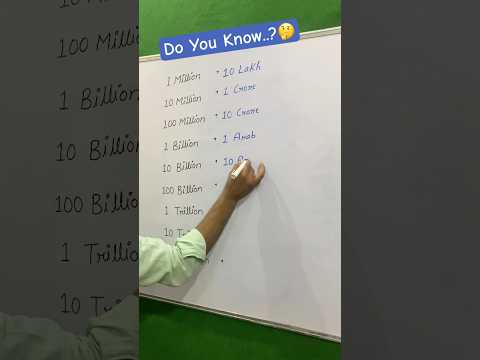 Do You Know..?🤔
1 Million • 10 Lakh
10 Million • 1 Crore
100 Million • 10 Crore
1 Billion • 1 Arab
10 Billion • 10
100 Billion •
1 Trillion
10
•
100 Million
1 Billion
10 Billion
100 Billion
1 Trillion
10